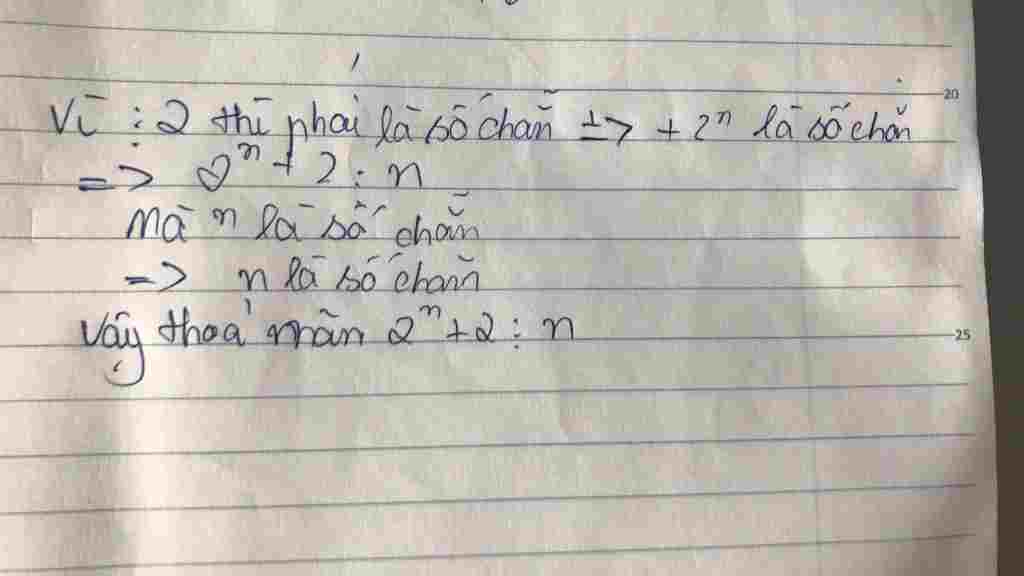 Vì ⋮ 2 thì phải là số chẵn => + 2ⁿ là số chẵn
20
=> 2ⁿ + 2 ⋮ n
Mà n là số chẵn
=> n là số chẵn
Vậy thoả mãn 2ⁿ + 2 ⋮ n
25